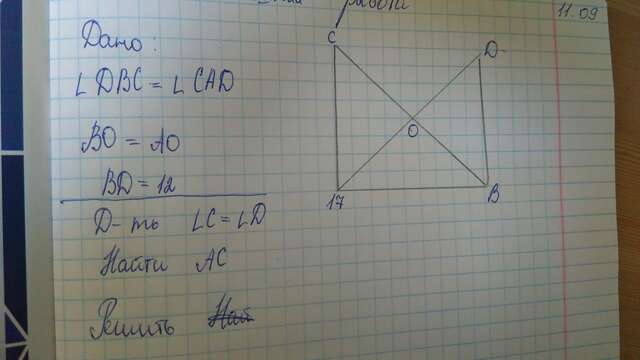 работа
11.09
Дано:
∟DBC = ∟CAD
BO = AO
BD = 12
Д-ть ∟C = ∟D
Найти AC
Решить Най
C
D
O
17
B